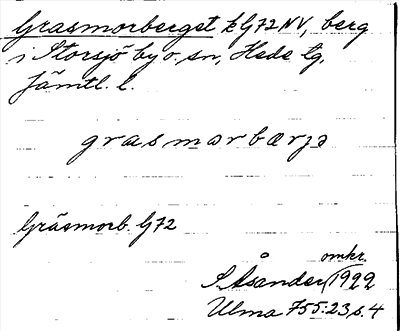 Grasmorberget kG72NV, berg
i Storsjö by o. sn, Hede tg,
Jämtl. l.
grasmorbærjə
Gräsmorb. G72
omkr.
S. Åsander, 1922
Ulma 755:23, s. 4